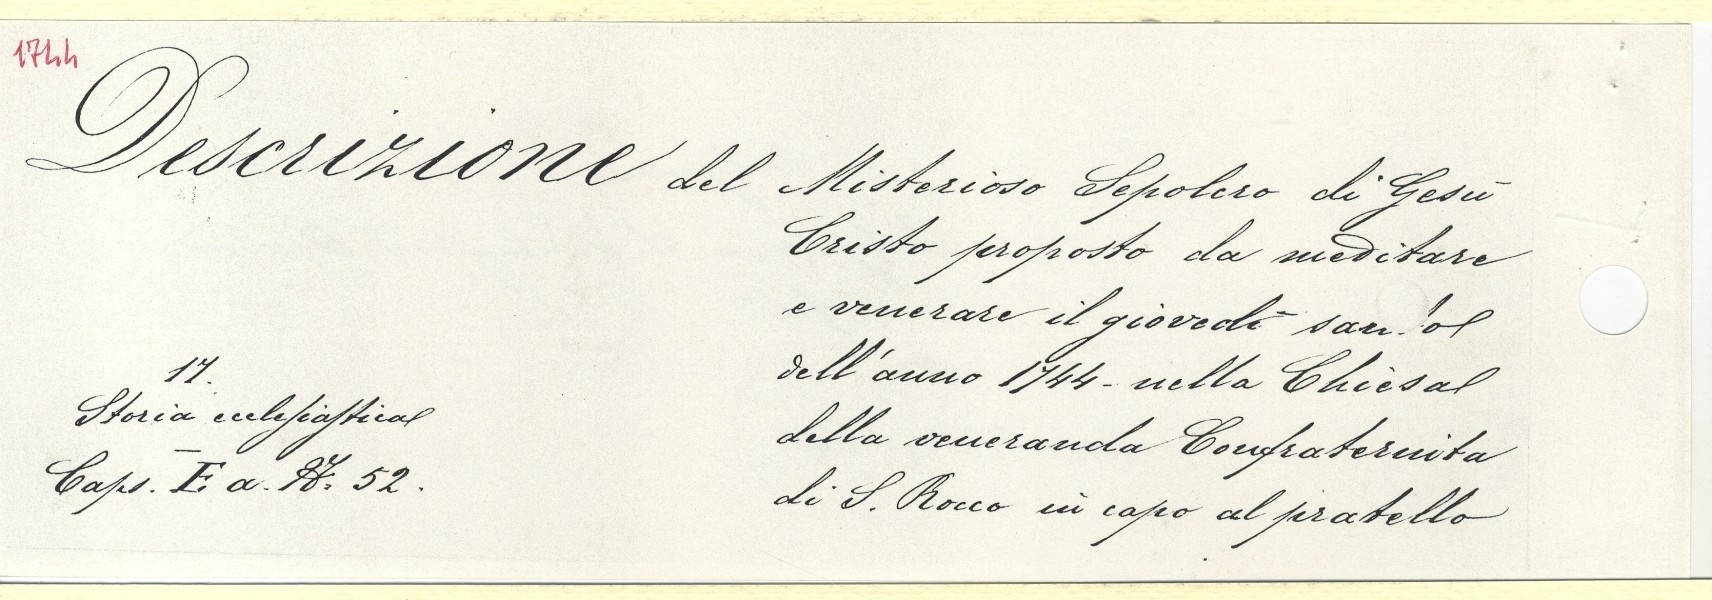 1744
Descrizione del Misterioso Sepolcro di Gesù
Cristo proposto da meditare
e venerare il giovedì santo
dell'anno 1744 - nella Chiesa
della veneranda Confraternita
di S. Rocco in capo al pratello
17.
Storia ecclesiastica
Caps. E a. 52.